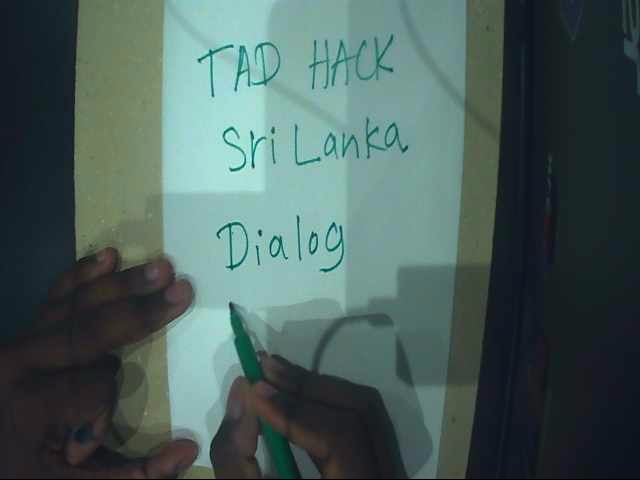 TAD HACK
Sri Lanka
Dialog